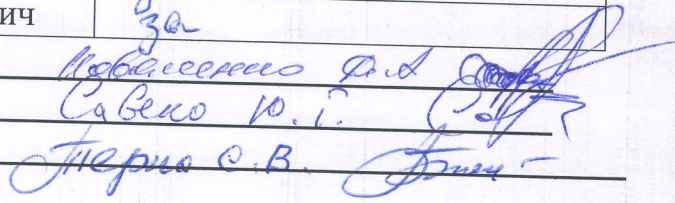 ич за
Коваленко Ф.А
Савенко Ю.Г.
Терно С.В.